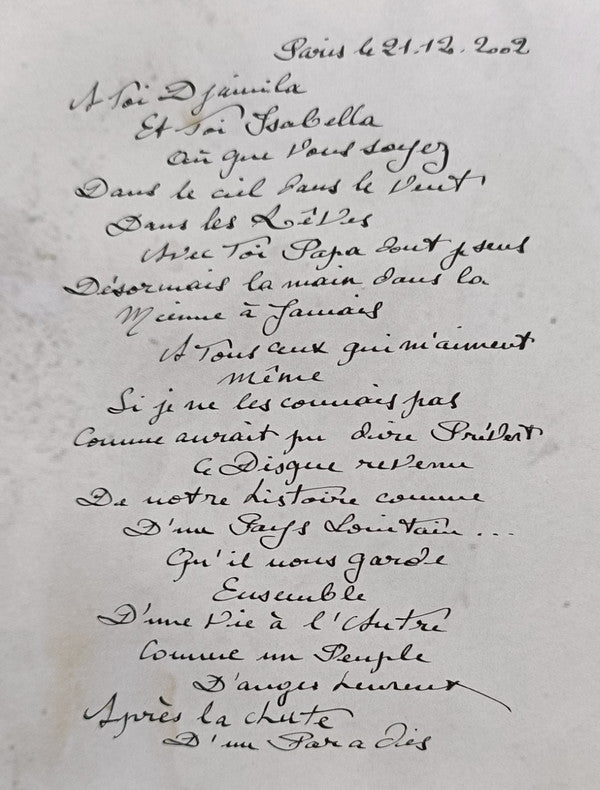 Paris le 21.12.2002
A Toi Djamila
Et Toi Isabella
Où que vous soyez
Dans le ciel dans le vent
Dans les Rêves
Avec Toi Papa dont je sens
Désormais la main dans la
Mienne à Jamais
A Tous ceux qui m'aiment
même
Si je ne les connais pas
Comme aurait pu dire Prévert
Ce Disque revenu
De notre histoire comme
D'un Pays Lointain...
Qu'il nous garde
Ensemble
D'une Vie à l'Autre
Comme un Peuple
D'anges heureux
Après la chute
D'un Paradis